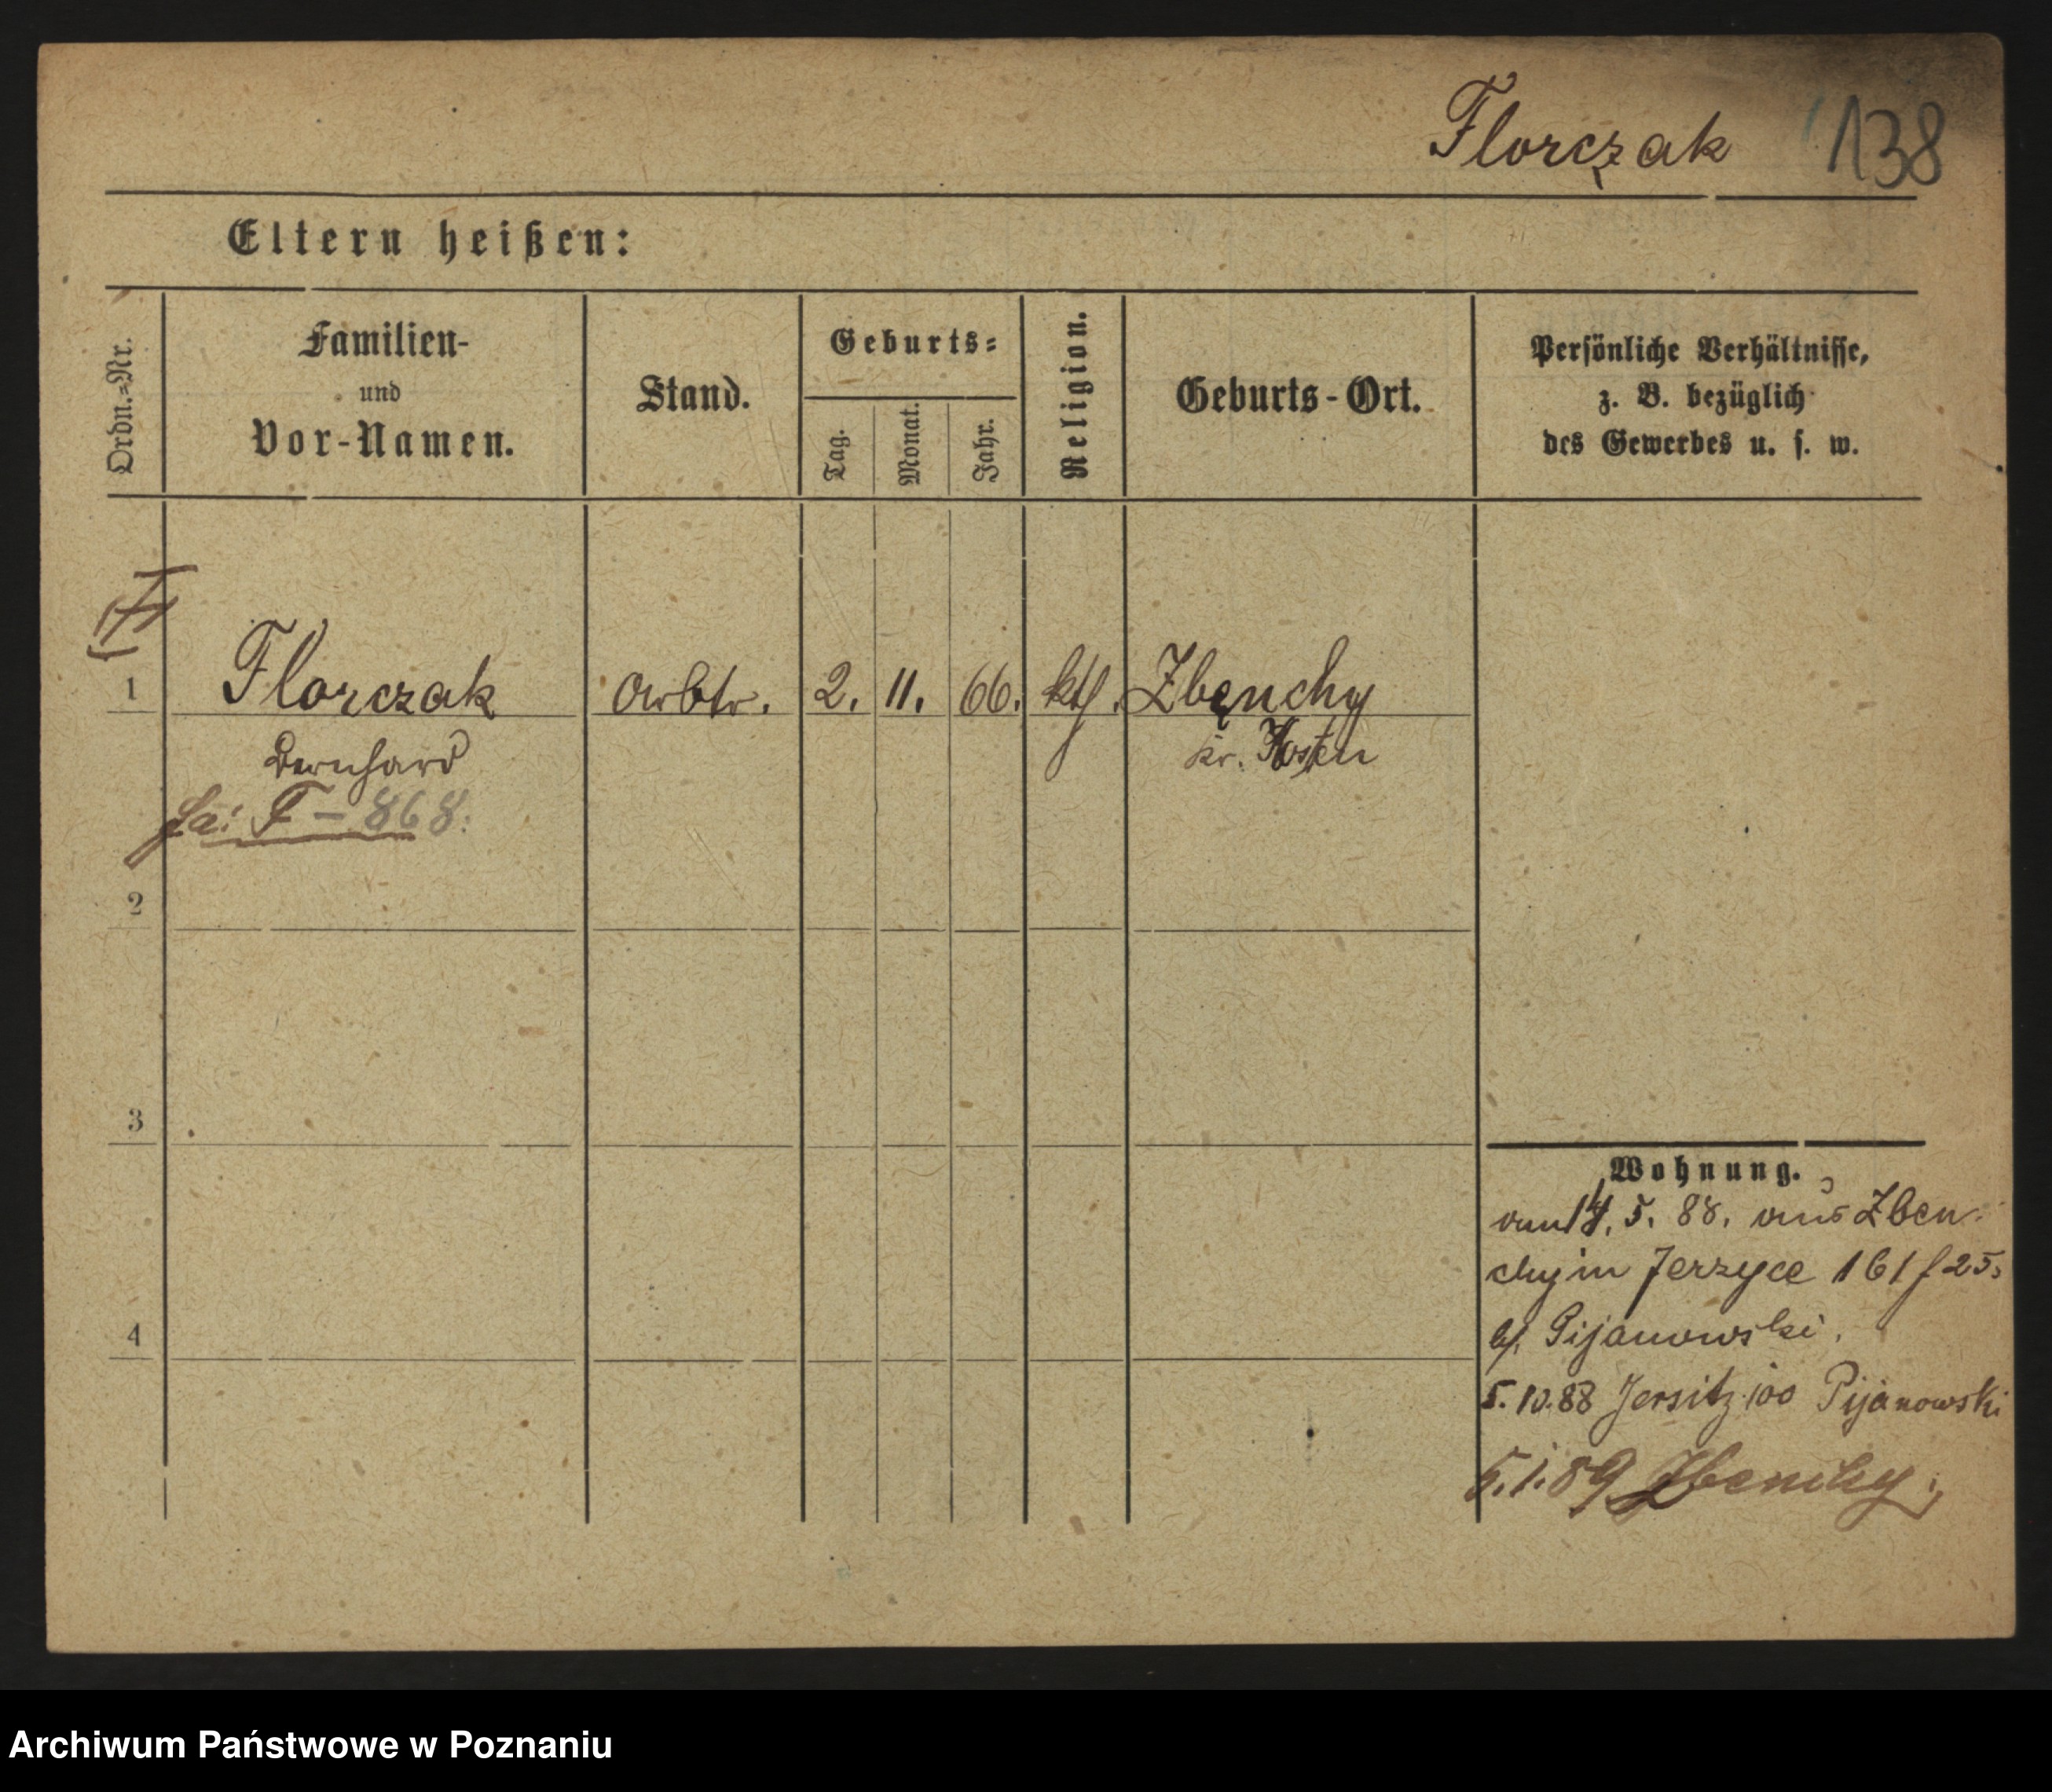 Florczak 138
Eltern heißen:
Ordn.-Nr.
Familien-
und
Vor-Namen.
Stand.
Geburts-
Tag.
Monat.
Jahr.
Religion.
Geburts-Ort.
Persönliche Verhältnisse,
z. B. bezüglich
des Gewerbes u. s. w.
1 Florczak Arbtr. 2. 11. 66. kth. Zbęnchy
Bernhard kr. Kosten
F - 868.
2
3
4
Wohnung.
14. 5. 88. aus Zben-
chy in Jerzyce 161 f 25.
b/. Pijanowski.
5. 10. 88 Jersitz 100 Pijanowski
5. 1. 89 Zbenchy.
Archiwum Państwowe w Poznaniu